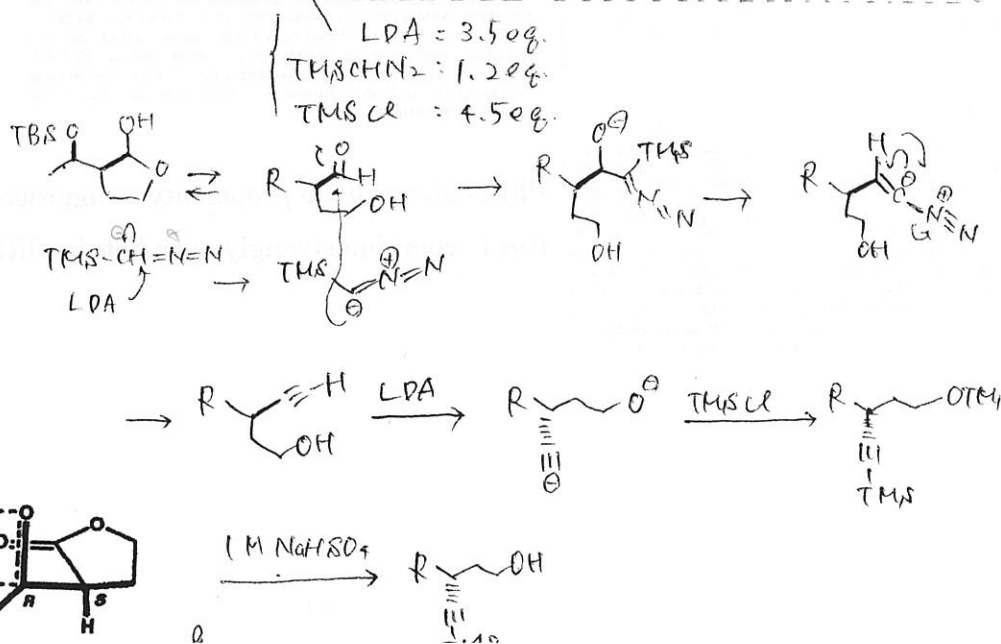 LDA = 3.5 eq.
TMSCHN2 : 1.2 eq.
TMSCl : 4.5 eq.
TBS O OH O
R O H OH
R O⊖ TMS N N OH
R H ⊖ C N⊕ N OH
TMS-CH=N=N
LDA
TMS ⊖ ⊕ N=N
R H OH
LDA
R O⊖ ⊖
TMSCl
R OTMS TMS
O O O R S H
1 M NaHSO4
R OH